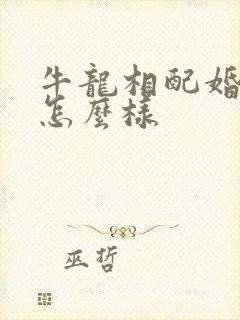 牛龍相配婚
怎麼樣
巫哲